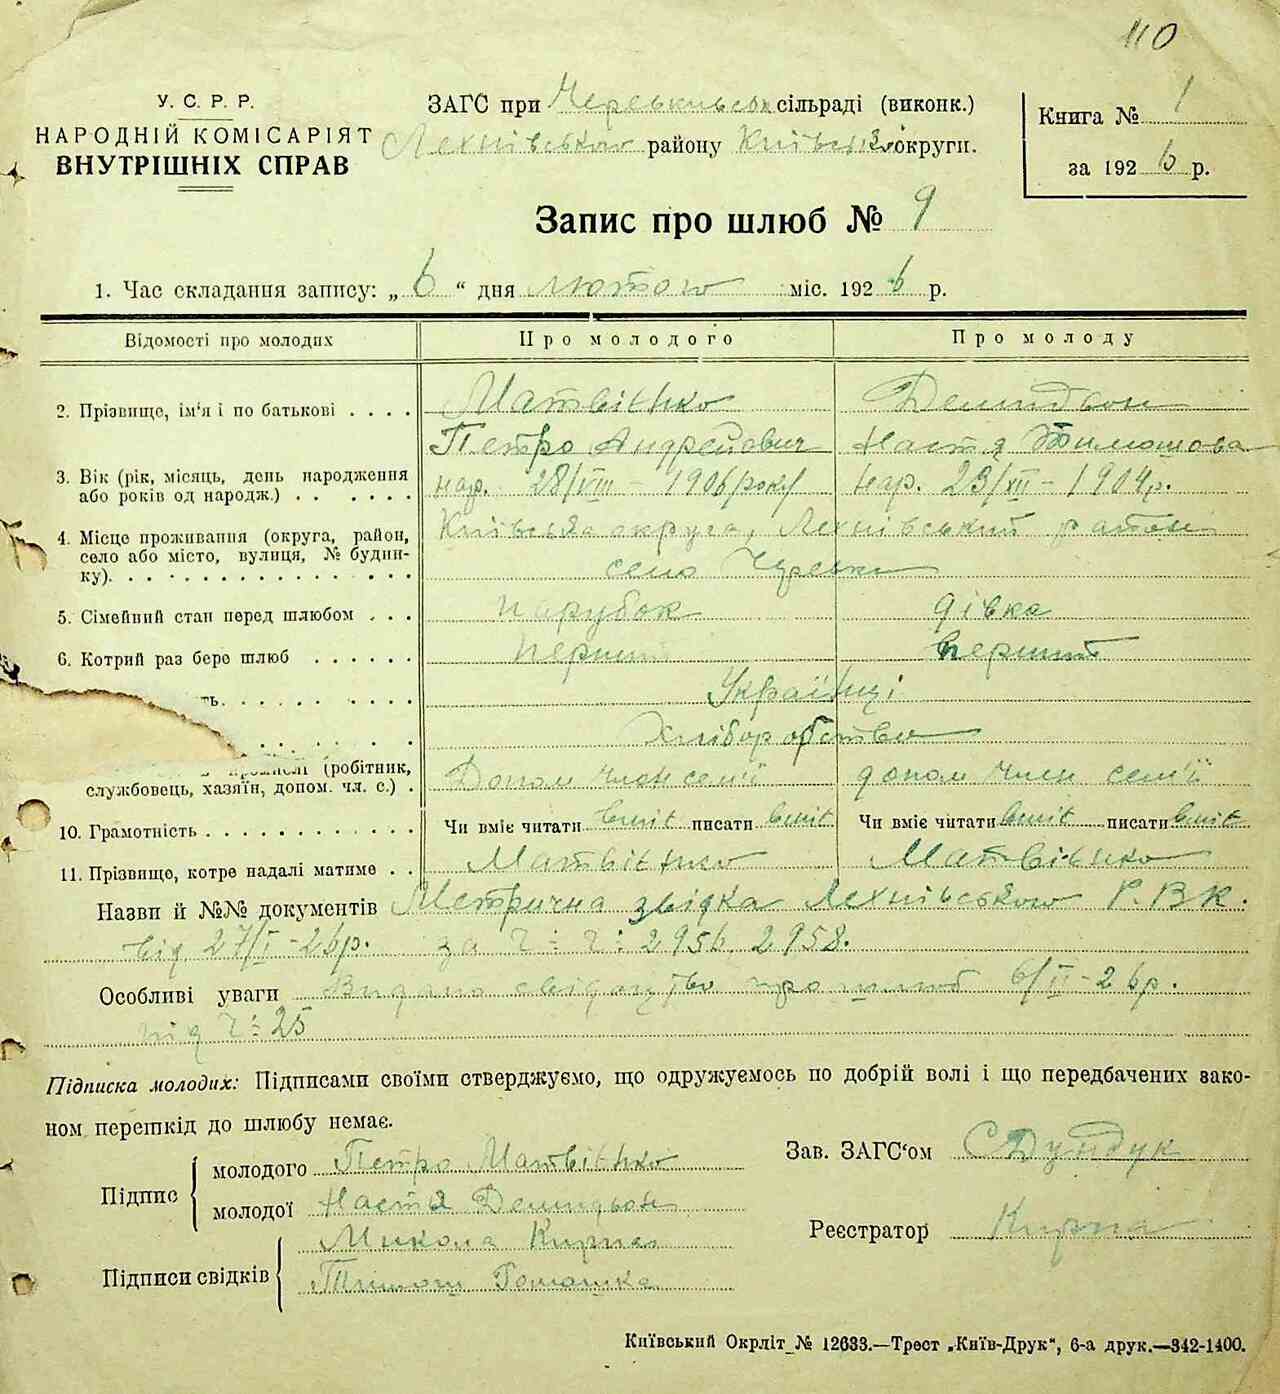 110
У. С. Р. Р.
НАРОДНІЙ КОМІСАРІЯТ
ВНУТРІШНІХ СПРАВ
ЗАГС при сільраді (виконк.)
Лехнівського району Київської округи.
Книга № 1
за 1926 р.
Запис про шлюб № 9
1. Час складання запису: „6“ дня лютого міс. 1926 р.
Відомості про молодих Про молодого Про молоду
2. Прізвище, ім'я і по батькові . . . . Матвієнко
Петро Андрейович Настя Тимошова
3. Вік (рік, місяць, день народження
або років од народж.) . . . . . . нар. 28/VIII - 1906 року нар. 23/XII - 1904 р.
4. Місце проживання (округа, район,
село або місто, вулиця, № будин-
ку). . . . . . . . . . . . . . Київська округа, Лехнівський район
село
5. Сімейний стан перед шлюбом . . . парубок дівка
6. Котрий раз бере шлюб . . . . . . перший перший
ть. . . . . . . . . Українці
Хліборобство
(робітник,
службовець, хазяїн, допом. чл. с.) . Допом член сем'ї допом член сем'ї
10. Грамотність . . . . . . . . . . . . Чи вміє читати вміє писати вміє Чи вміє читати вміє писати вміє
11. Прізвище, котре надалі матиме . . Матвієнко Матвієнко
Назви й №№ документів Метрична звідка Лехнівського Р.В.К.
від 27/I-26р. за ч: ч: 2956, 2958.
Особливі уваги Видано свідоцтво про шлюб 6/II-26р.
під ч: 25
Підписка молодих: Підписами своїми стверджуємо, що одружуємось по добрій волі і що передбачених зако-
ном перешкід до шлюбу немає.
Підпис молодого Петро Матвієнко
молодої Настя
Зав. ЗАГС'ом С Дундук
Реєстратор Кирпа
Підписи свідків Микола Кирпа
Тимош
Київський Окрліт № 12633.—Трест „Київ-Друк“, 6-а друк.—342-1400.